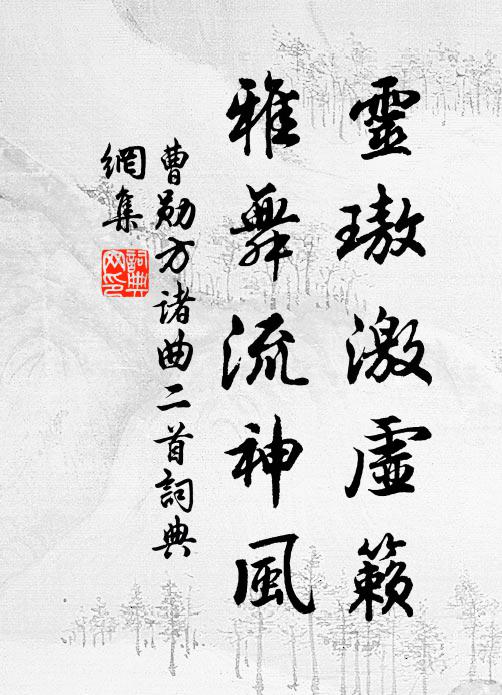 靈璈激虛籟
雅舞流神風
曹勛方諸曲二首詞典
網集
詞典网印